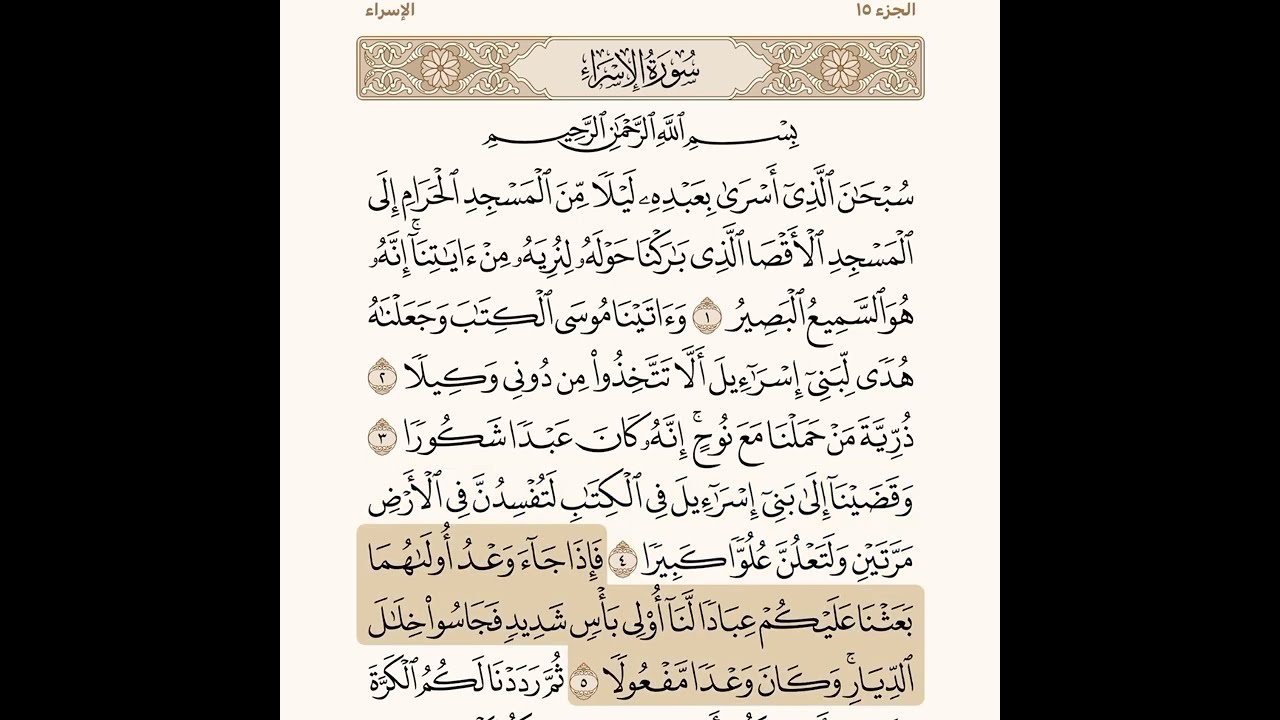 الجزء ١٥
الإسراء
سُورَةُ الإِسْرَاءِ
بِسْمِ ٱللَّهِ ٱلرَّحْمَٰنِ ٱلرَّحِيمِ
سُبْحَٰنَ ٱلَّذِىٓ أَسْرَىٰ بِعَبْدِهِۦ لَيْلًا مِّنَ ٱلْمَسْجِدِ ٱلْحَرَامِ إِلَى
ٱلْمَسْجِدِ ٱلْأَقْصَا ٱلَّذِى بَٰرَكْنَا حَوْلَهُۥ لِنُرِيَهُۥ مِنْ ءَايَٰتِنَآ ۚ إِنَّهُۥ
هُوَ ٱلسَّمِيعُ ٱلْبَصِيرُ ١ وَءَاتَيْنَا مُوسَى ٱلْكِتَٰبَ وَجَعَلْنَٰهُ
هُدًى لِّبَنِىٓ إِسْرَٰٓءِيلَ أَلَّا تَتَّخِذُوا۟ مِن دُونِى وَكِيلًا ٢
ذُرِّيَّةَ مَنْ حَمَلْنَا مَعَ نُوحٍ ۚ إِنَّهُۥ كَانَ عَبْدًا شَكُورًا ٣
وَقَضَيْنَآ إِلَىٰ بَنِىٓ إِسْرَٰٓءِيلَ فِى ٱلْكِتَٰبِ لَتُفْسِدُنَّ فِى ٱلْأَرْضِ
مَرَّتَيْنِ وَلَتَعْلُنَّ عُلُوًّا كَبِيرًا ٤ فَإِذَا جَآءَ وَعْدُ أُولَىٰهُمَا
بَعَثْنَا عَلَيْكُمْ عِبَادًا لَّنَآ أُو۟لِى بَأْسٍ شَدِيدٍ فَجَاسُوا۟ خِلَٰلَ
ٱلدِّيَارِ ۚ وَكَانَ وَعْدًا مَّفْعُولًا ٥ ثُمَّ رَدَدْنَا لَكُمُ ٱلْكَرَّةَ